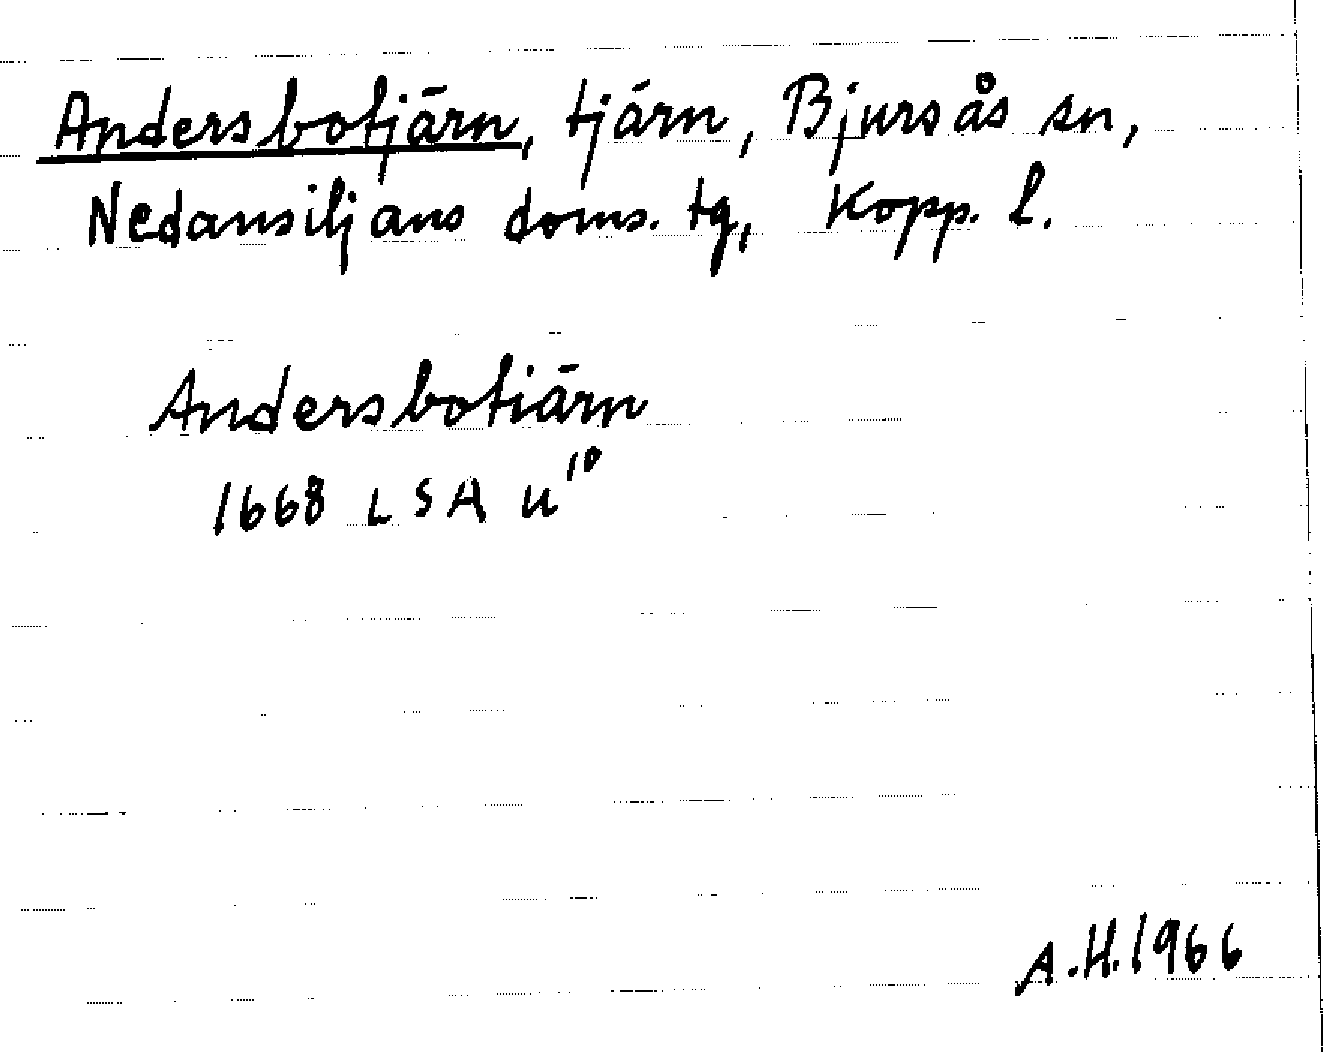 Andersbotjärn, tjärn, Bjursås sn,
Nedansiljans doms. tg, Kopp. l.
Andersbotiärn
1668 LSA U¹⁰
A.H. 1966